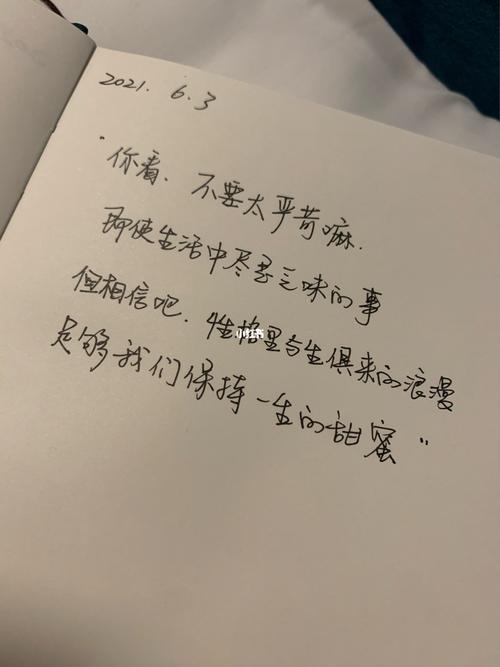 2021. 6.3
"你看. 不要太严苛嘛.
即使生活中尽是乏味的事
但相信吧. 性格里与生俱来的浪漫
足够我们保持一生的甜蜜"
小红书